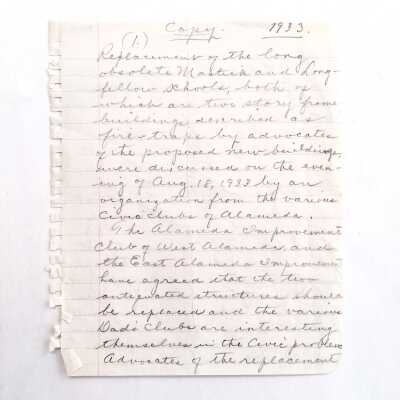 Copy. 1933.
(1.)
Replacement of the long
obsolete Mastick and Long-
fellow schools, both of
which are two story frame
buildings described as
fire-traps by advocates
of the proposed new buildings,
were discussed on the even-
ing of Aug. 18, 1933 by an
organization from the various
Civic Clubs of Alameda.
The Alameda Improvement
Club of West Alameda, and
the East Alameda Improvement
have agreed that the two
antiquated structures should
be replaced and the various
Dad's Clubs are interesting
themselves in the Civic problem.
Advocates of the replacement